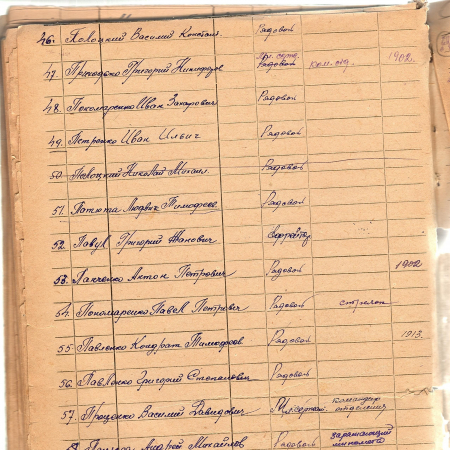 46. Полоцкий Василий Констан. Рядовой
47. Приходько Григорий Никифоров Мл. серж. Рядовой ком. отд. 1902.
48. Пономаренко Иван Захарович Рядовой
49. Петренко Иван Ильич Рядовой
50. Полоцкий Николай Михаил. Рядовой
51. Патюта Людвик Тимофеев. Рядовой
52. Павук Григорий Иванович Ефрейтор
53. Панченко Антон Петрович Рядовой 1902
54. Пономаренко Павел Петрович Рядовой стрелок
55. Павленко Кондрат Тимофеев Рядовой 1913.
56. Павленко Григорий Степанович Рядовой
57. Проценко Василий Давидович Мл. сержант. командир отделения
Андрей Михайлов Рядовой заряжающий миномета